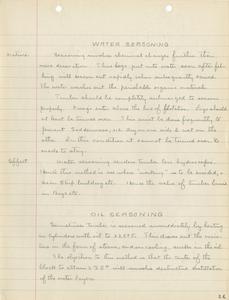 WATER SEASONING
Nature. Seasoning involves chemical changes further than
mere desiccation. Thus logs put into water soon after fel-
ling will season out rapidly when subsequently sawed.
The water washes out the perishable organic materials.
Timber should be completely submerged to season
properly. Except where the line of flotation. Logs should
at least be turned over. This must be done frequently to
prevent sap being one side & wet on the
other. In this condition it cannot be turned over to
made to stay.
Effect. Water seasoning renders timber less hydroscopic.
Hence this method is used when "working" is to be avoided, as
in ship building etc. Hence the value of timber
in Bogs etc.
OIL SEASONING
Sometimes timber is seasoned immediately by heating
in cylinders with oil to 225°F. This drives out the mois-
ture in the form of steam, and on cooling, sucks in the oil.
The objection to this method is that the center of the
block to attain 225° will involve destructive distillation
of the outer layers.